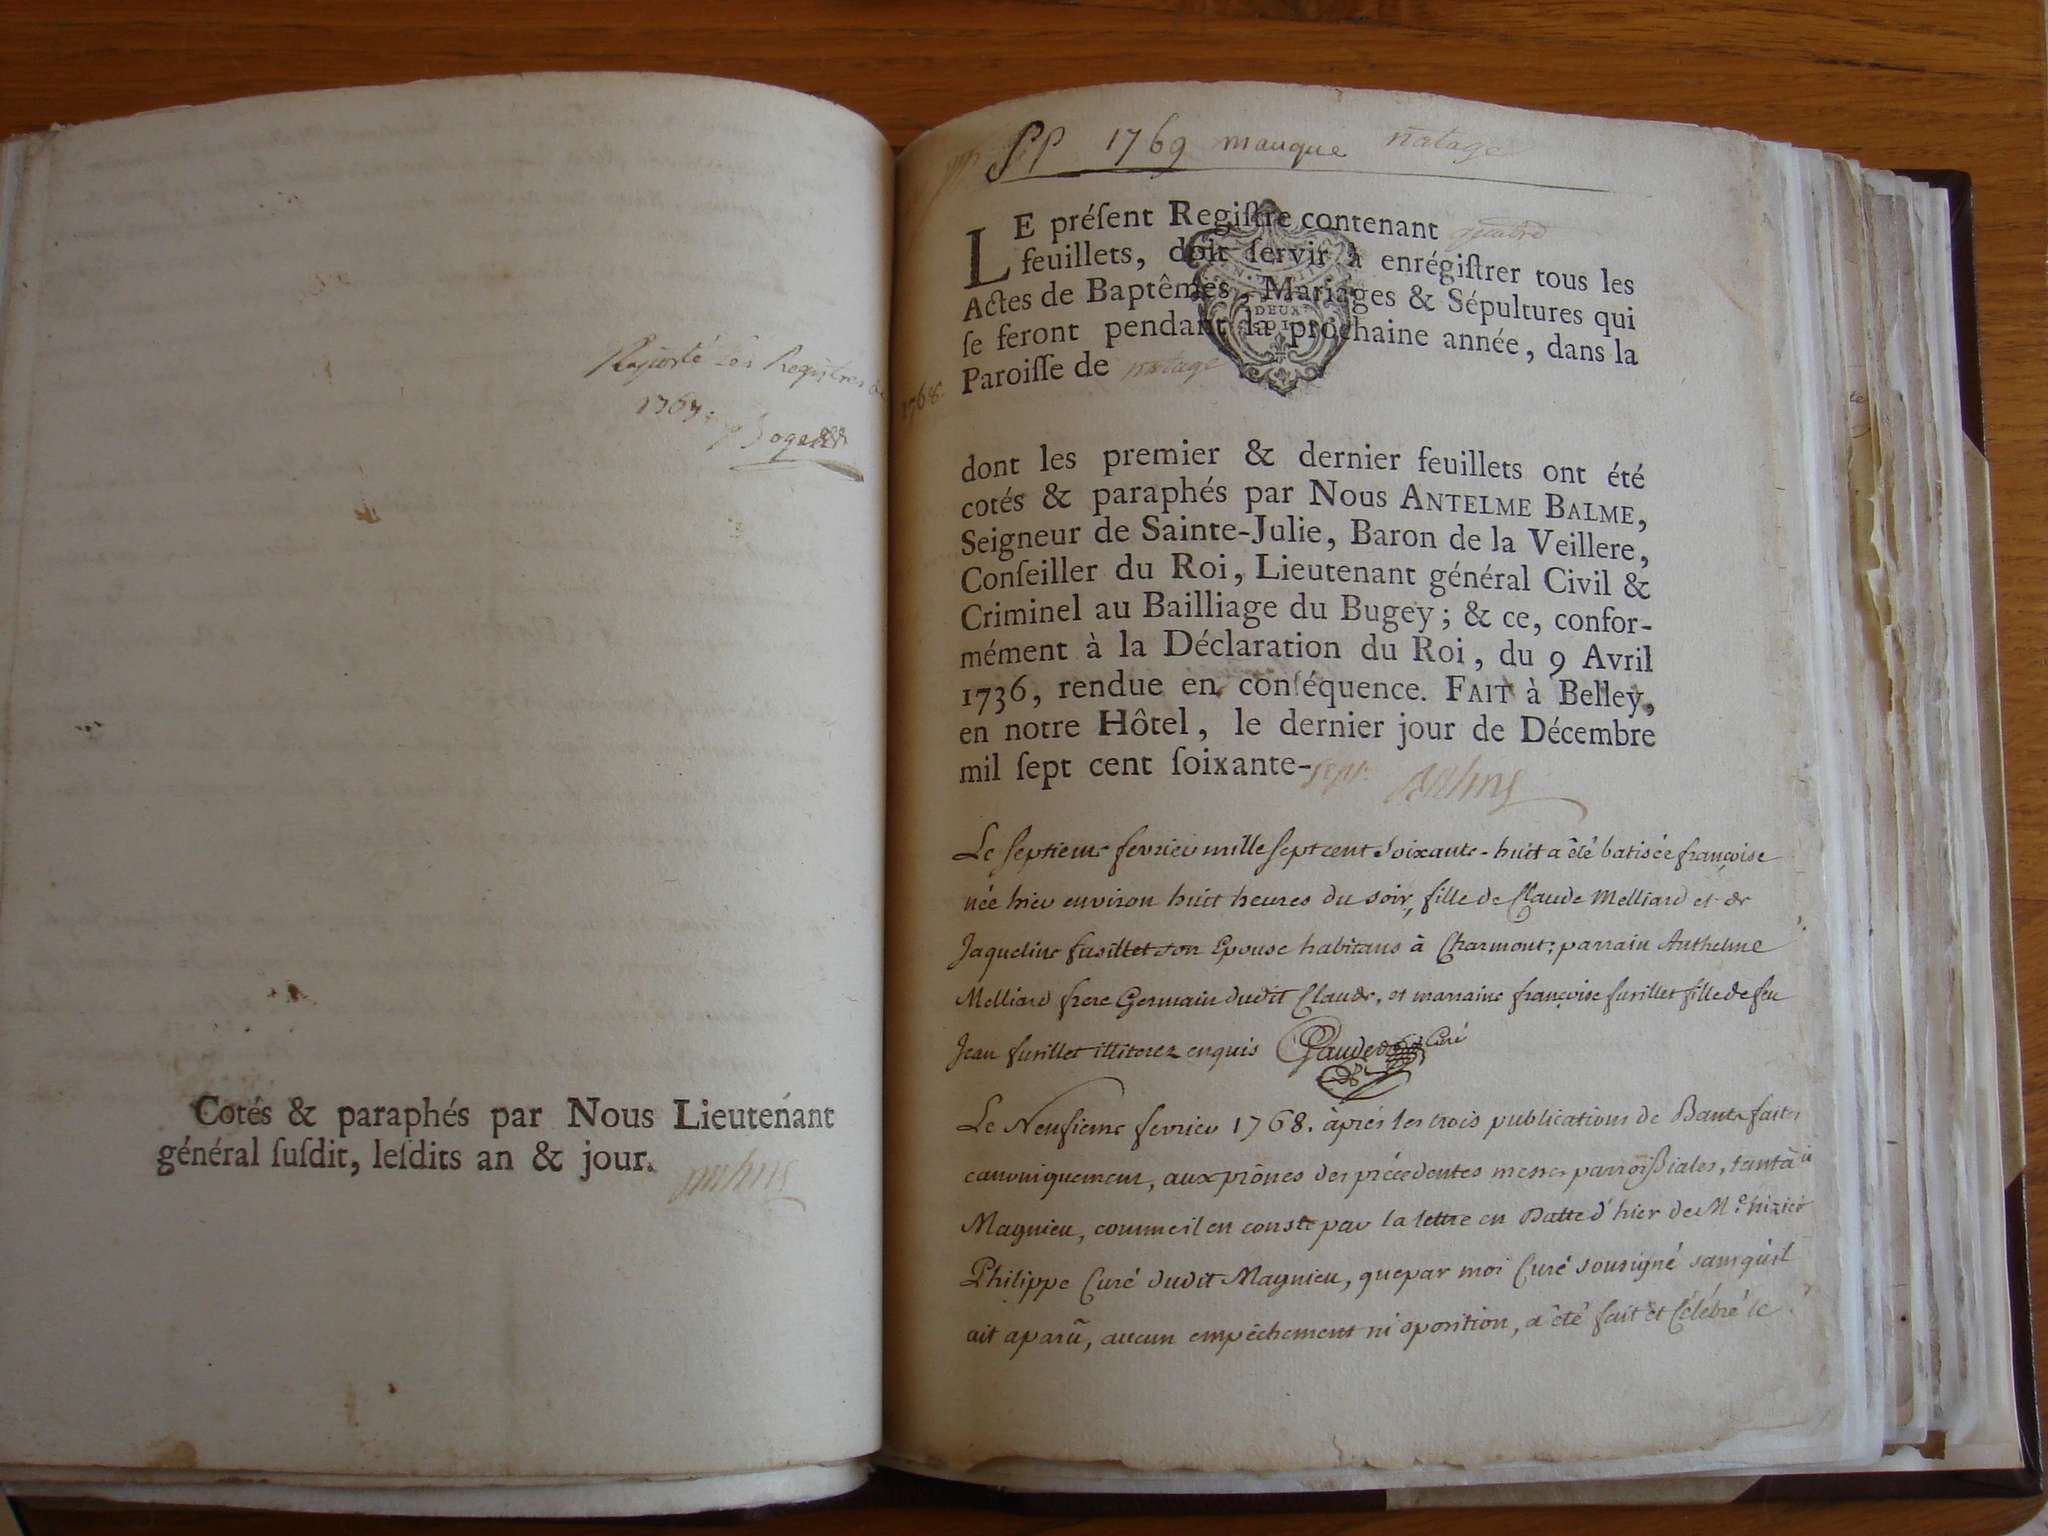 Raporté les Registres de
1767.
Cotés & paraphés par Nous Lieutenant
général ſuſdit, leſdits an & jour.
1769 manque natage
LE préſent Regiſtre contenant quatre
feuillets, doit ſervir à enrégiſtrer tous les
Actes de Baptêmes, Mariages & Sépultures qui
ſe feront pendant la prochaine année, dans la
Paroiſſe de natage
DEUX
1768.
dont les premier & dernier feuillets ont été
cotés & paraphés par Nous ANTELME BALME,
Seigneur de Sainte-Julie, Baron de la Veillere,
Conſeiller du Roi, Lieutenant général Civil &
Criminel au Bailliage du Bugey ; & ce, confor-
mément à la Déclaration du Roi, du 9 Avril
1736, rendue en conſéquence. FAIT à Belley,
en notre Hôtel, le dernier jour de Décembre
mil ſept cent ſoixante-sept
Le septieme fevrier mille sept cent soixante-huit a êté batisée françoise
née hier environ huit heures du soir, fille de Claude Melliard et de
Jaqueline fusillet son Epouse habitans à Charmont; parrain Anthelme
Melliard frere Germain dudit Claude, et marraine françoise fusillet fille de feu
Jean fusillet illiterez enquis Curé
Le Neufieme fevrier 1768. àprés les trois publications de Bants faites
canoniquement, aux prônes des précedentes messes parroissiales, tant à
Magnieu, comme il en conste par la lettre en Datte d'hier de Mre nizier
Philippe Curé dudit Magnieu, que par moi Curé sousigné sans qu'il
ait aparû, aucun empêchement ni oposition, a êté fait et Célébré le